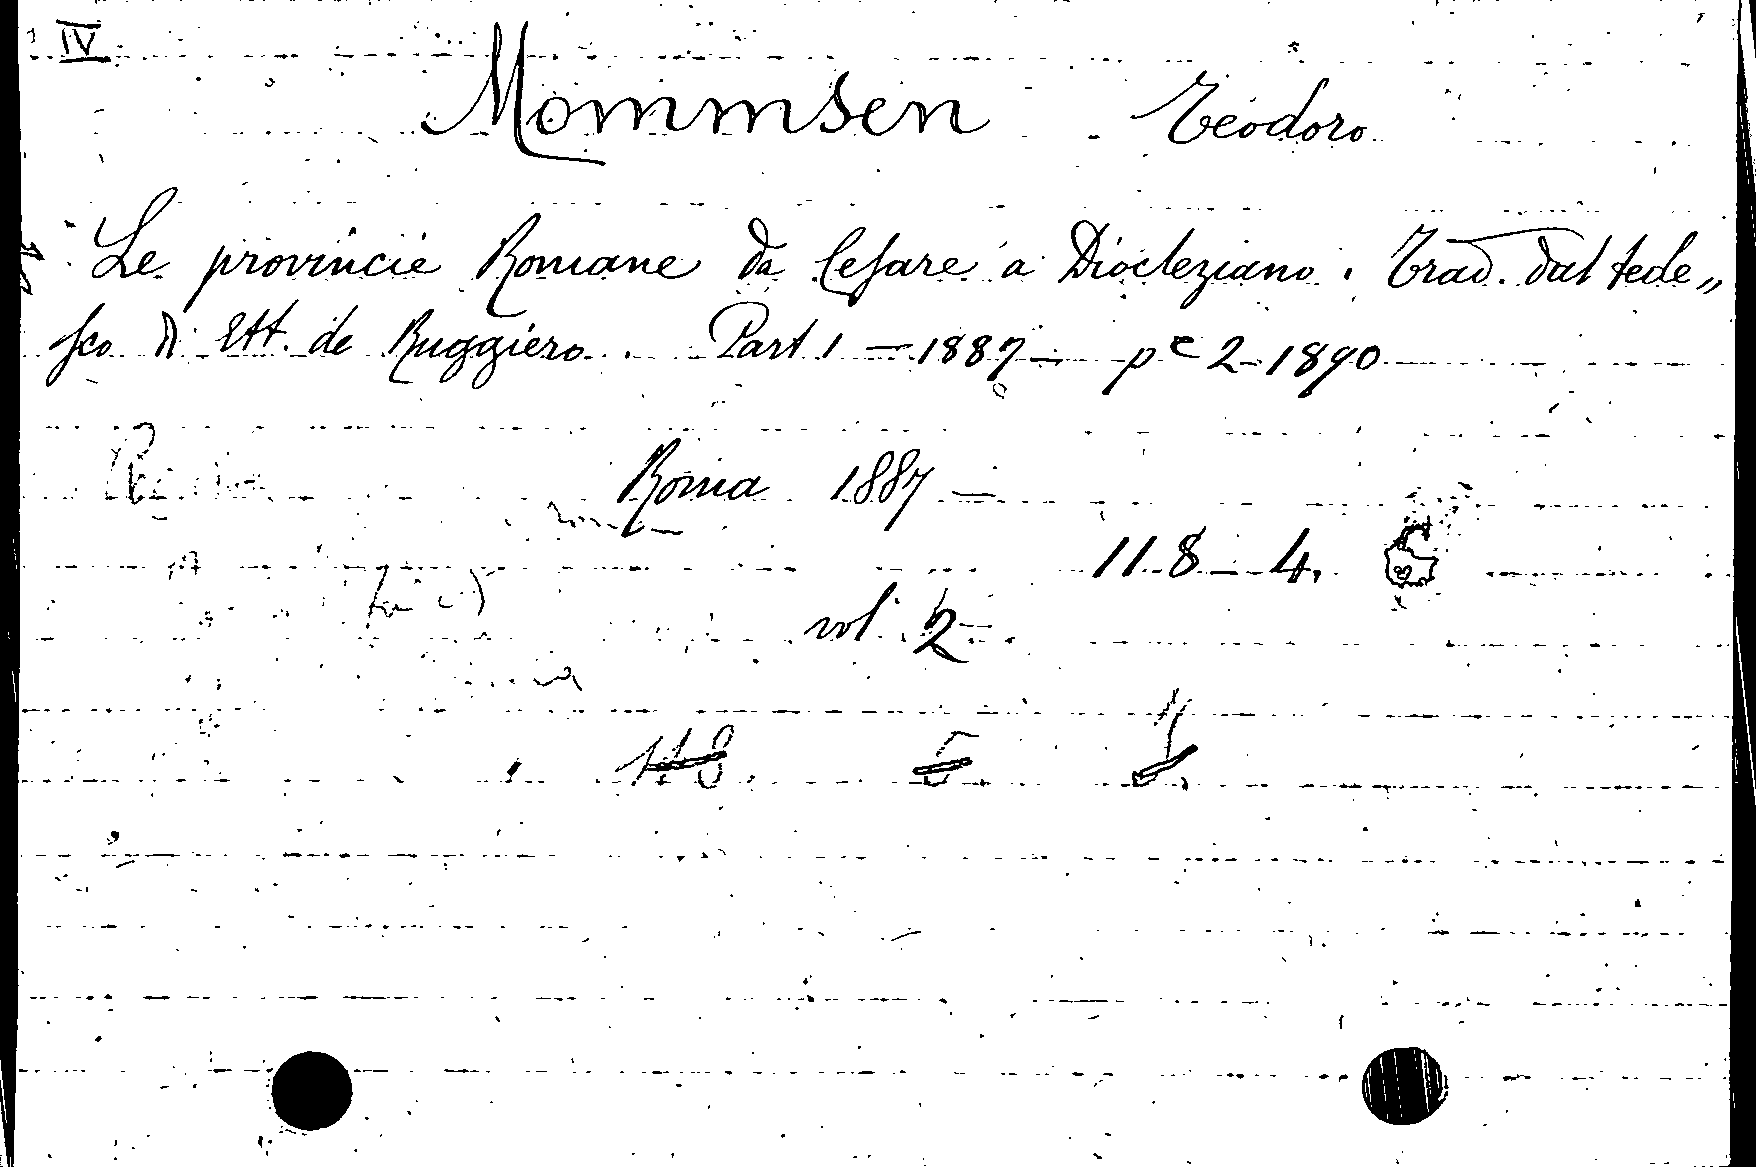 IV
Mommsen Teodoro
Le provincie Romane da Cesare a Diocleziano. Trad. dal tede„
sco di Ett. de Ruggiero. Part 1 — 1887 — pe 2 - 1890
Roma 1887 —
118 — 4.
vol. 2
118 5